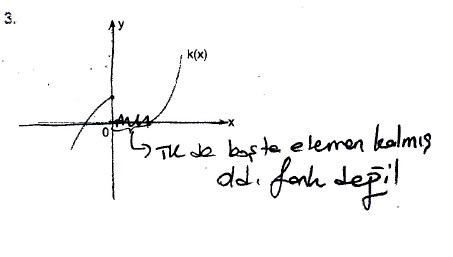 3.
y
k(x)
0
x
TK de boşta eleman kalmış
old. fonk değil